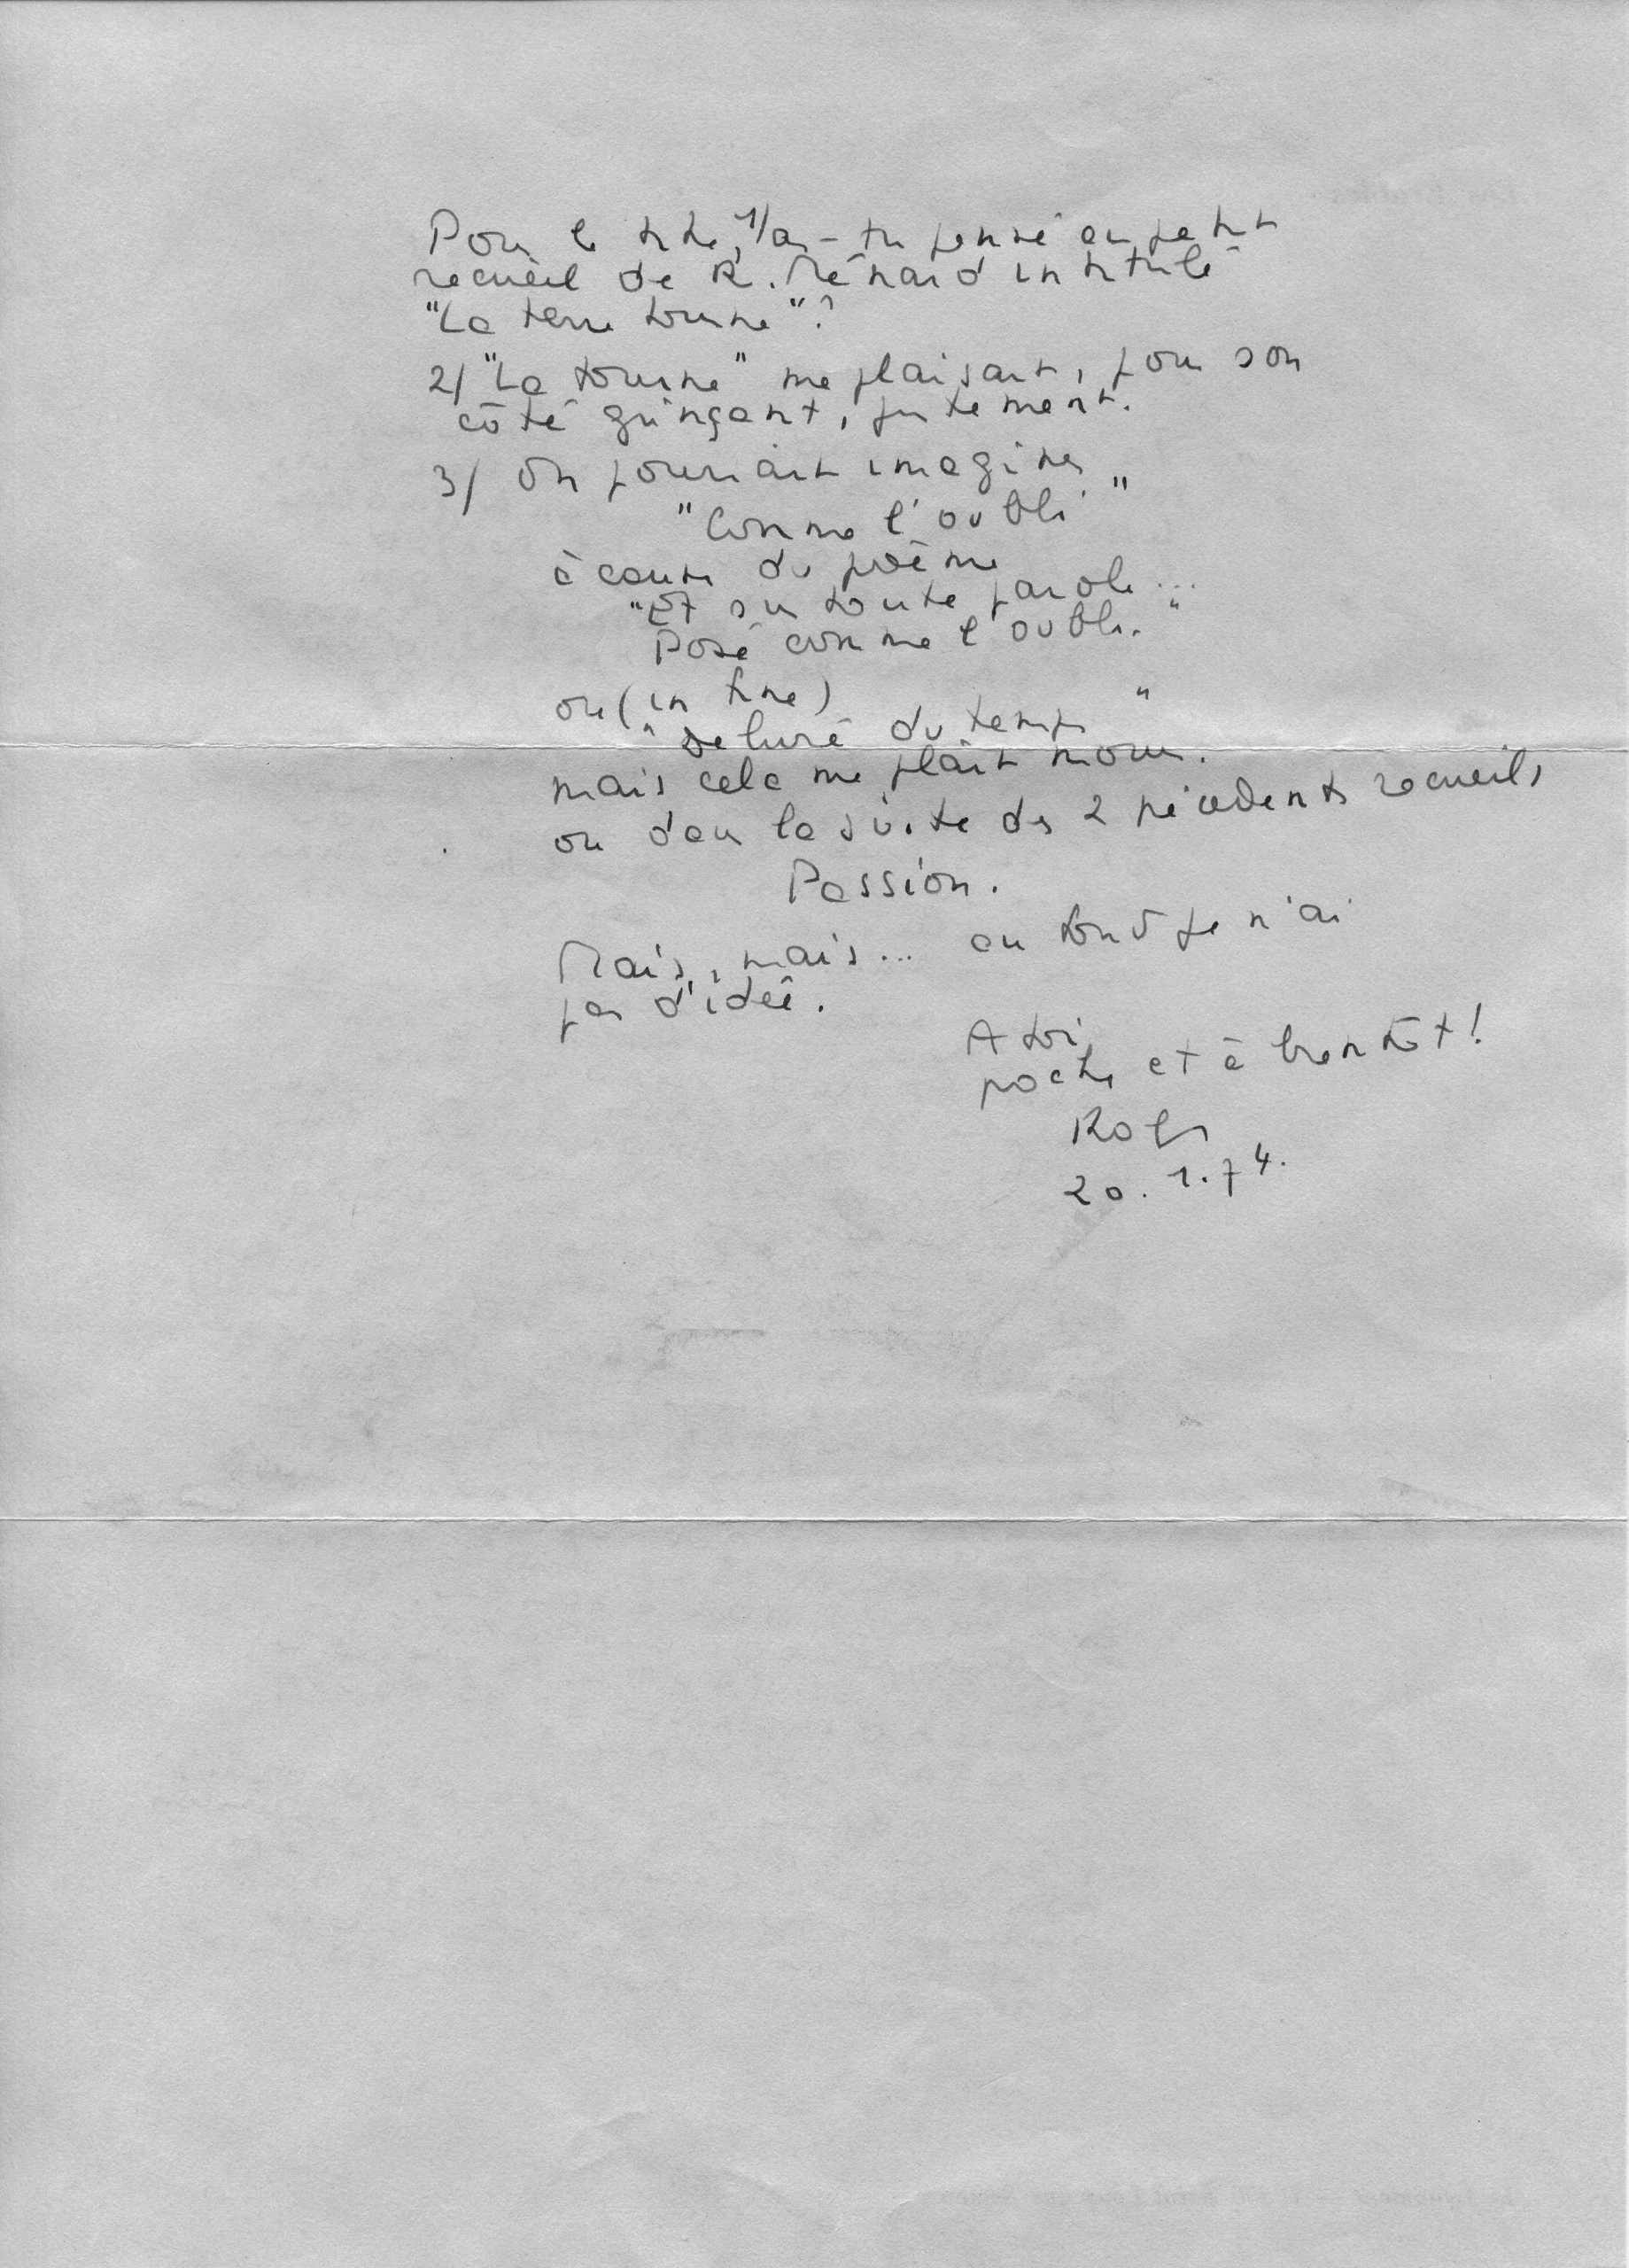 Pour le titre, 1/ as-tu pensé au petit
recueil de R. Ménard intitulé
"La terre tourne"?
2/ "La tourne" me plaisait, pour son
côté grinçant, justement.
3/ On pourrait imaginer
"Comme l'oubli"
à cause du poème
"Et sur toute parole...
Posé comme l'oubli."
ou (in fine)
" du temps"
mais cela me plaît moins.
ou dans la suite des 2 précédents recueils
Passion.
Mais, mais... au fond je n'ai
pas d'idée.
A toi,
poète et à bientôt!
20.1.74.